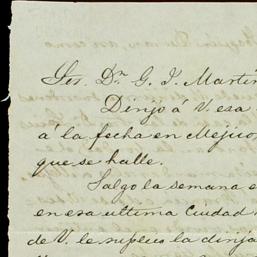 Sr. Dn. G. I. Martin
Dirijo á V esa
á la fecha en Mejico,
que se halle.
Salgo la semana e
en esa ultima Ciudad
de V. le suplico la dirija